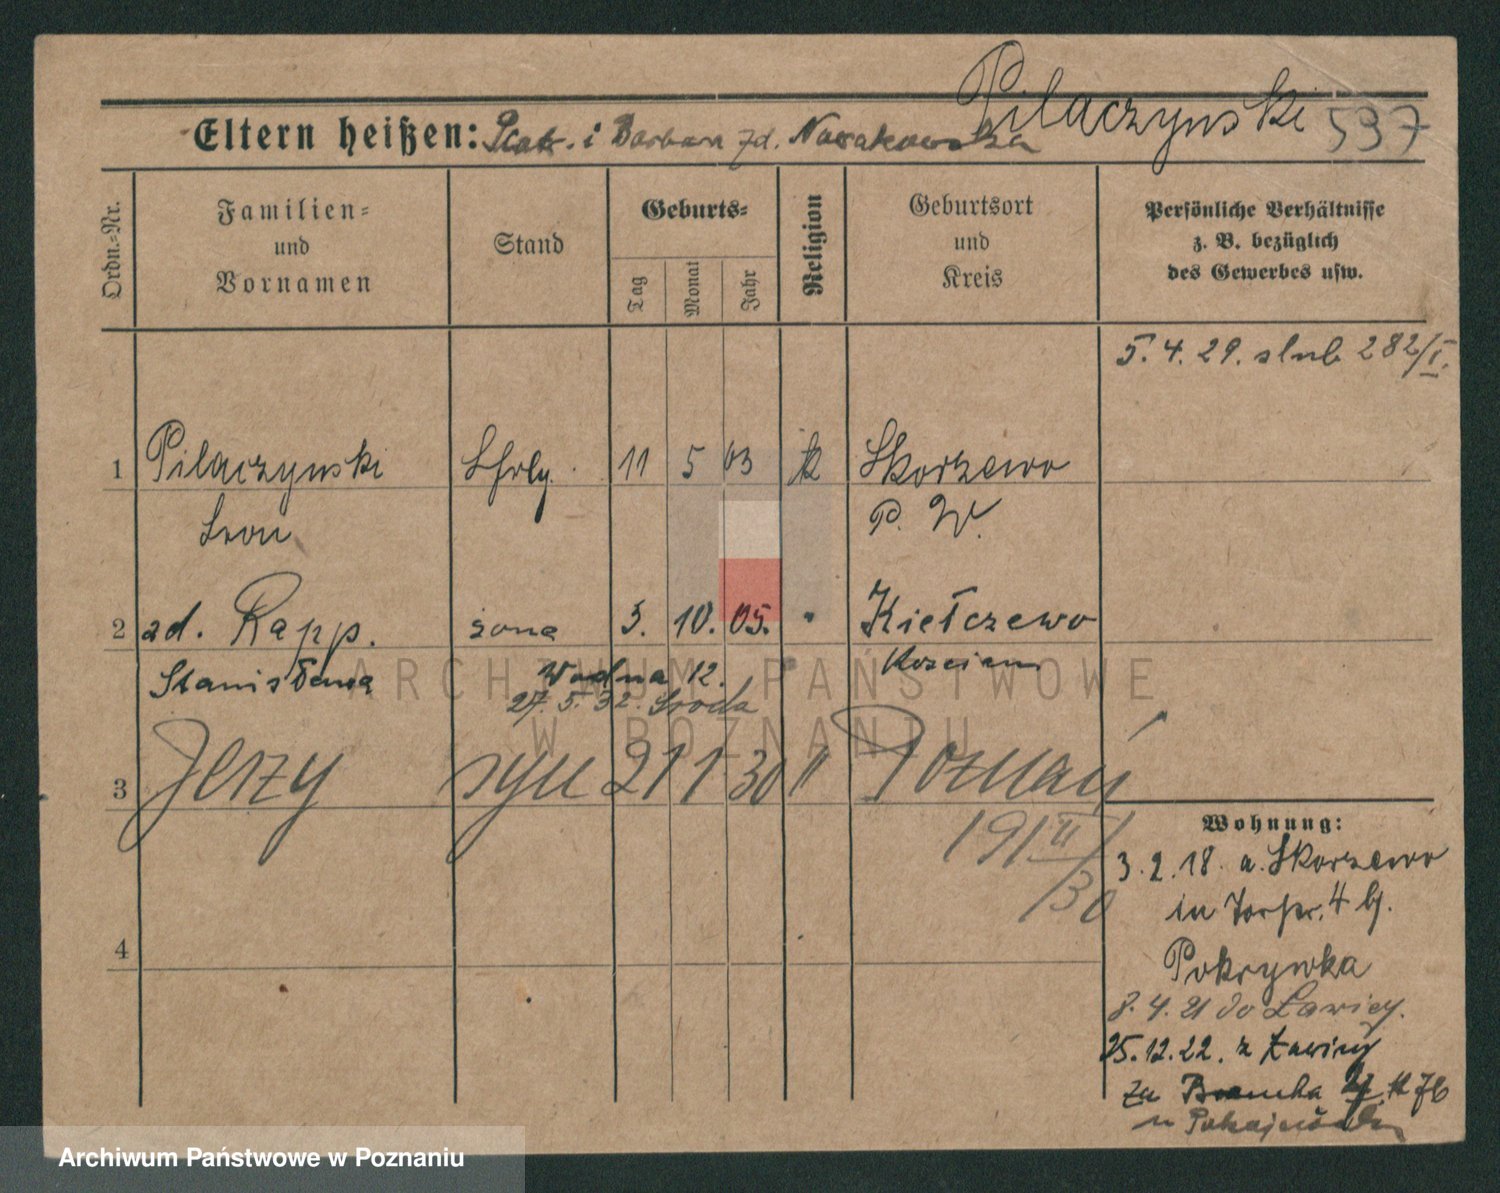 Pilaczynski 537
Eltern heißen: Piotr. i Barbara zd. Nowakowska
Ordn.-Nr.
Familien-
und
Vornamen
Stand
Geburts-
Tag
Monat
Jahr
Religion
Geburtsort
und
Kreis
Persönliche Verhältnisse
z. B. bezüglich
des Gewerbes usw.
5. 4. 29. slub 282/I.
1 Pilaczynski 11 5 03 k Skorzewo
Leon P. W.
2 zd. Rapp. żona 3. 10. 05. " Kiełczewo
Stanisława Wodna 12. Koscian
27. 5. 32. Sroda
3 Jerzy syn 21 1 30 " Poznań
191 II/30
4
Wohnung:
3. 2. 18. a. Skorzewo
in 4
Pokrywka
8. 4. 21 do Lawicy.
25. 12. 22. z Ławicy
za
u
ARCHIWUM PAŃSTWOWE
W POZNANIU
Archiwum Państwowe w Poznaniu